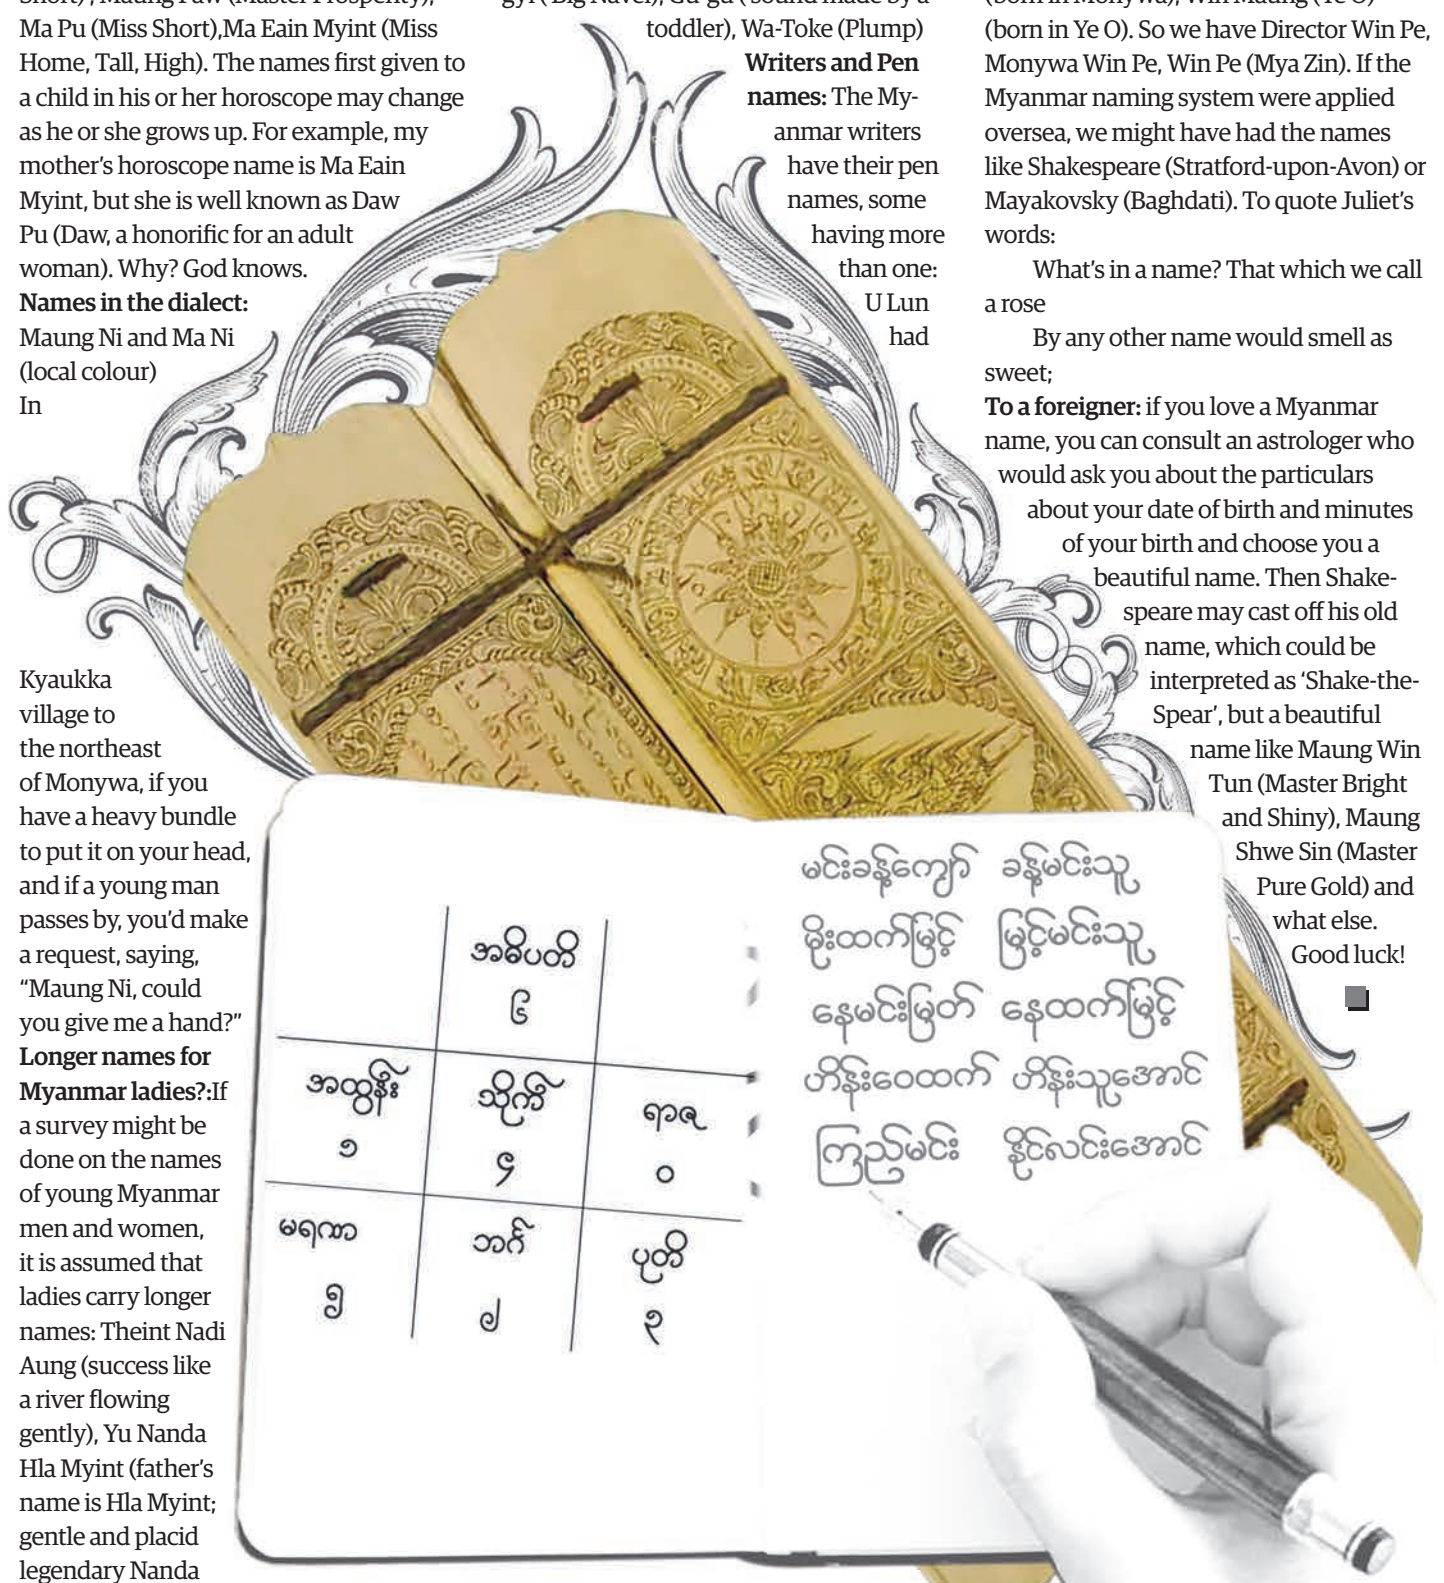 Short) , Maung Paw (Master Prosperity),
Ma Pu (Miss Short),Ma Eain Myint (Miss
Home, Tall, High). The names first given to
a child in his or her horoscope may change
as he or she grows up. For example, my
mother's horoscope name is Ma Eain
Myint, but she is well known as Daw
Pu (Daw, a honorific for an adult
woman). Why? God knows.
Names in the dialect:
Maung Ni and Ma Ni
(local colour)
In
Kyaukka
village to
the northeast
of Monywa, if you
have a heavy bundle
to put it on your head,
and if a young man
passes by, you'd make
a request, saying,
"Maung Ni, could
you give me a hand?"
Longer names for
Myanmar ladies?:If
a survey might be
done on the names
of young Myanmar
men and women,
it is assumed that
ladies carry longer
names: Theint Nadi
Aung (success like
a river flowing
gently), Yu Nanda
Hla Myint (father's
name is Hla Myint;
gentle and placid
legendary Nanda
gyi ( Big Navel), Gu-gu ( sound made by a
toddler), Wa-Toke (Plump)
Writers and Pen
names: The My-
anmar writers
have their pen
names, some
having more
than one:
U Lun
had
(born in Monywa), Win Maung (Ye O)
(born in Ye O). So we have Director Win Pe,
Monywa Win Pe, Win Pe (Mya Zin). If the
Myanmar naming system were applied
oversea, we might have had the names
like Shakespeare (Stratford-upon-Avon) or
Mayakovsky (Baghdati). To quote Juliet's
words:
What's in a name? That which we call
a rose
By any other name would smell as
sweet;
To a foreigner: if you love a Myanmar
name, you can consult an astrologer who
would ask you about the particulars
about your date of birth and minutes
of your birth and choose you a
beautiful name. Then Shake-
speare may cast off his old
name, which could be
interpreted as 'Shake-the-
Spear', but a beautiful
name like Maung Win
Tun (Master Bright
and Shiny), Maung
Shwe Sin (Master
Pure Gold) and
what else.
Good luck!
အဓိပတိ
၆
အထွန်း သိုက် ရာဇ
၁ ၄ ၀
မရဏ ဘင်္ဂ ပုတိ
၅ ၂ ၃
မင်းခန့်ကျော် ခန့်မင်းသူ
မိုးထက်မြင့် မြင့်မင်းသူ
နေမင်းမြတ် နေထက်မြင့်
ဟိန်းဝေထက် ဟိန်းသူအောင်
ကြည်မင်း နိုင်လင်းအောင်